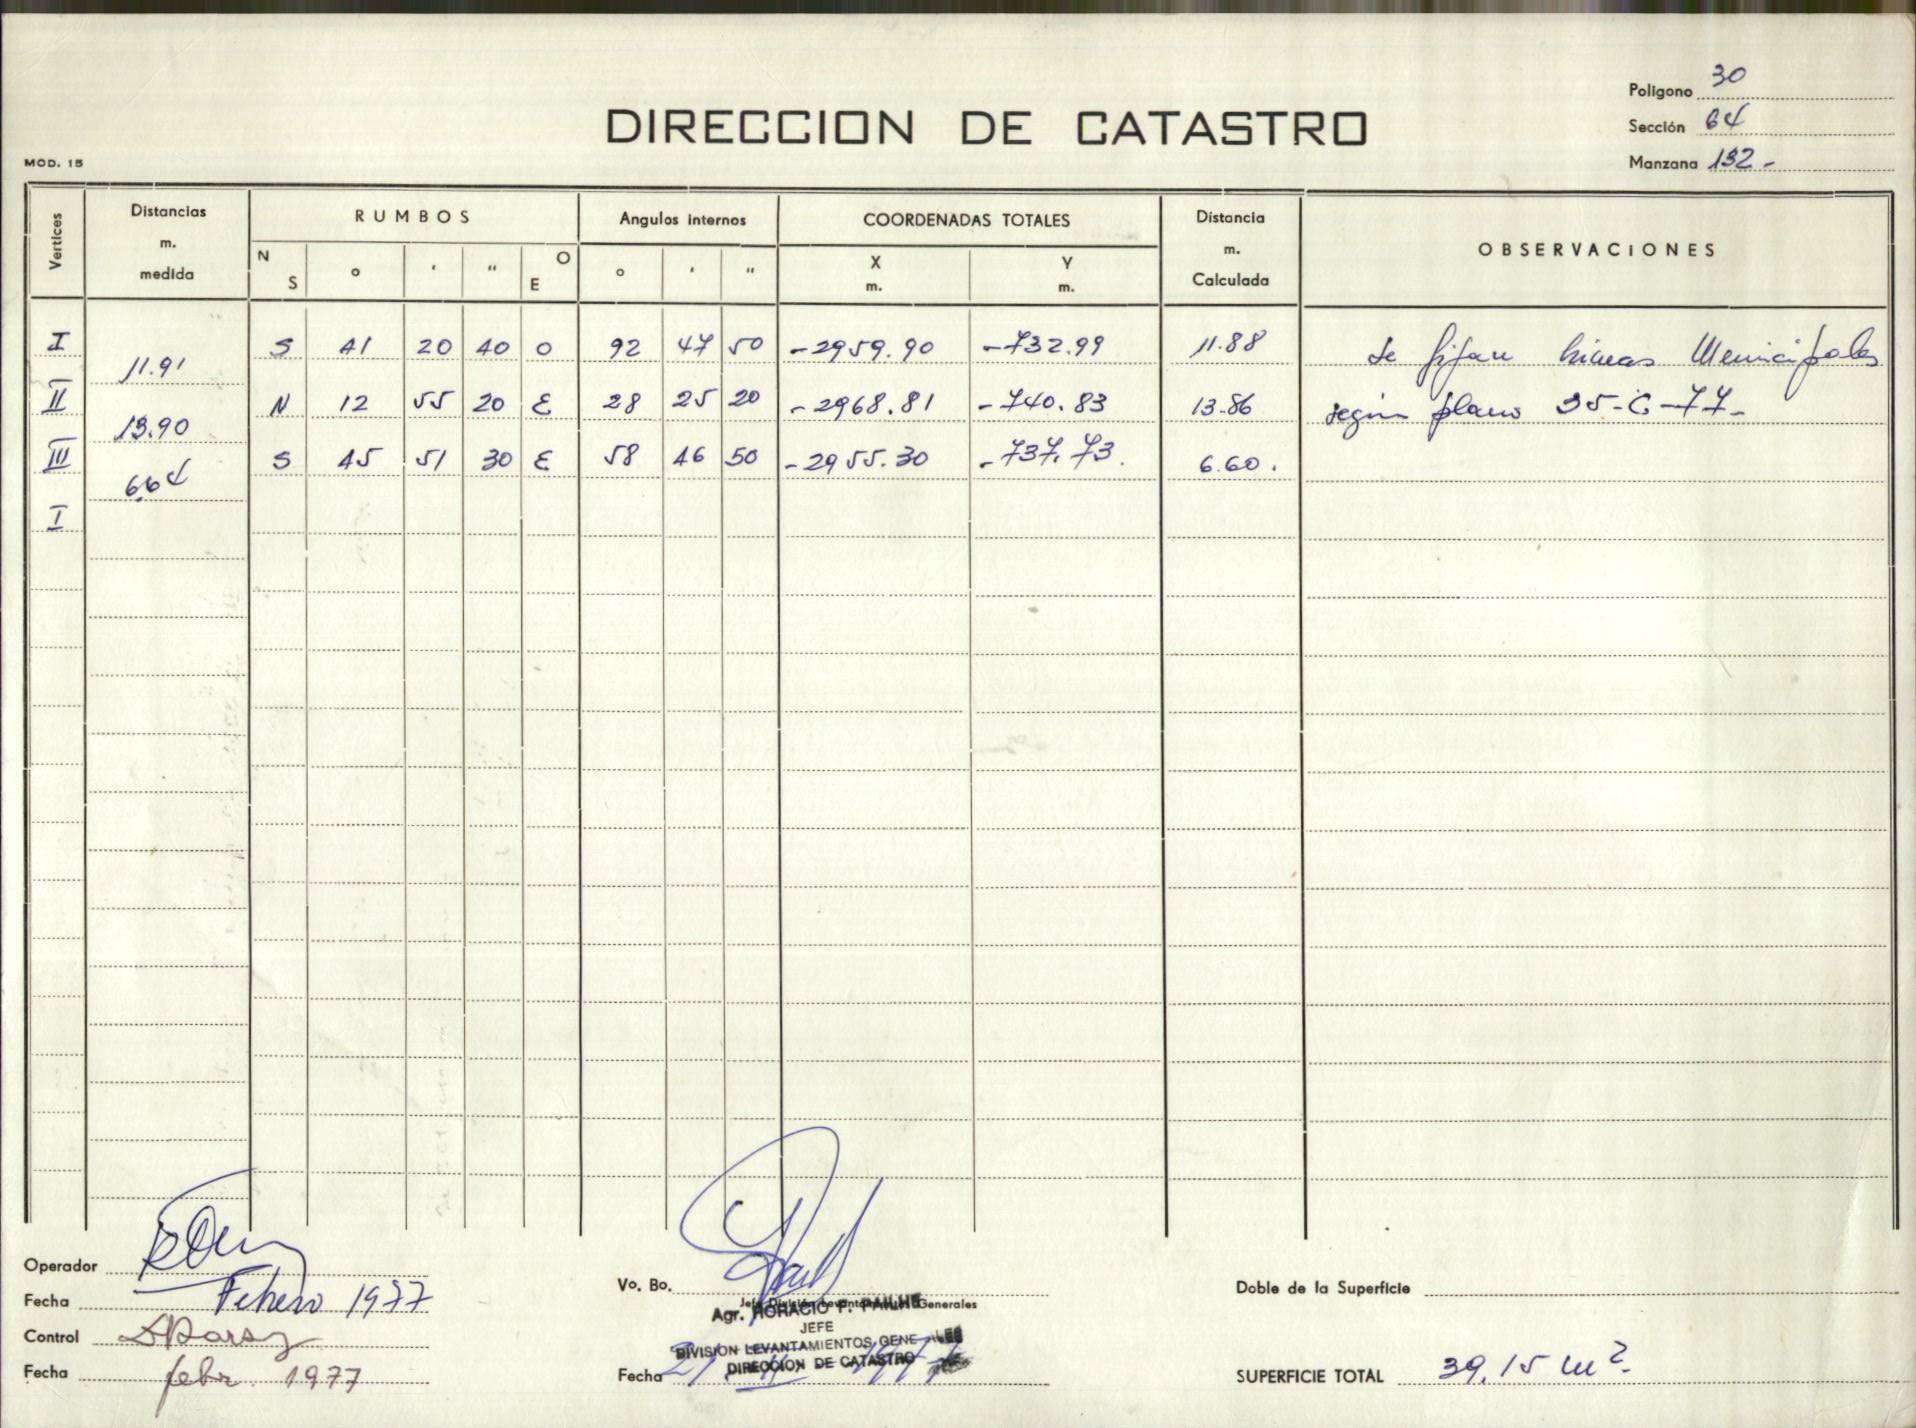 Poligono 30
DIRECCION DE CATASTRO
Sección 64
MOD. 15
Manzana 132-
Vertices
Distancias m. medida
RUMBOS
Angulos internos
COORDENADAS TOTALES
Distancia m. Calculada
OBSERVACIONES
N S ° ' " O E
° ' "
X m.
Y m.
I S 41 20 40 O 92 47 50 -2959.90 -732.99 11.88 Se fijan lineas Municipales
11.91
II N 12 55 20 E 28 25 20 -2968.81 -740.83 13.86 según plano 35-C-77-
13.90
III S 45 51 30 E 58 46 50 -2955.30 -737.73. 6.60.
6.64
I
Operador
Fecha Febrero 1977
Control
Fecha febr. 1977
Vo. Bo.
Jefe División Levantamientos Generales
Agr. HORACIO F. PAILHE
JEFE
DIVISION LEVANTAMIENTOS GENERALES
DIRECCION DE CATASTRO
Fecha
Doble de la Superficie
SUPERFICIE TOTAL 39.15 m2.